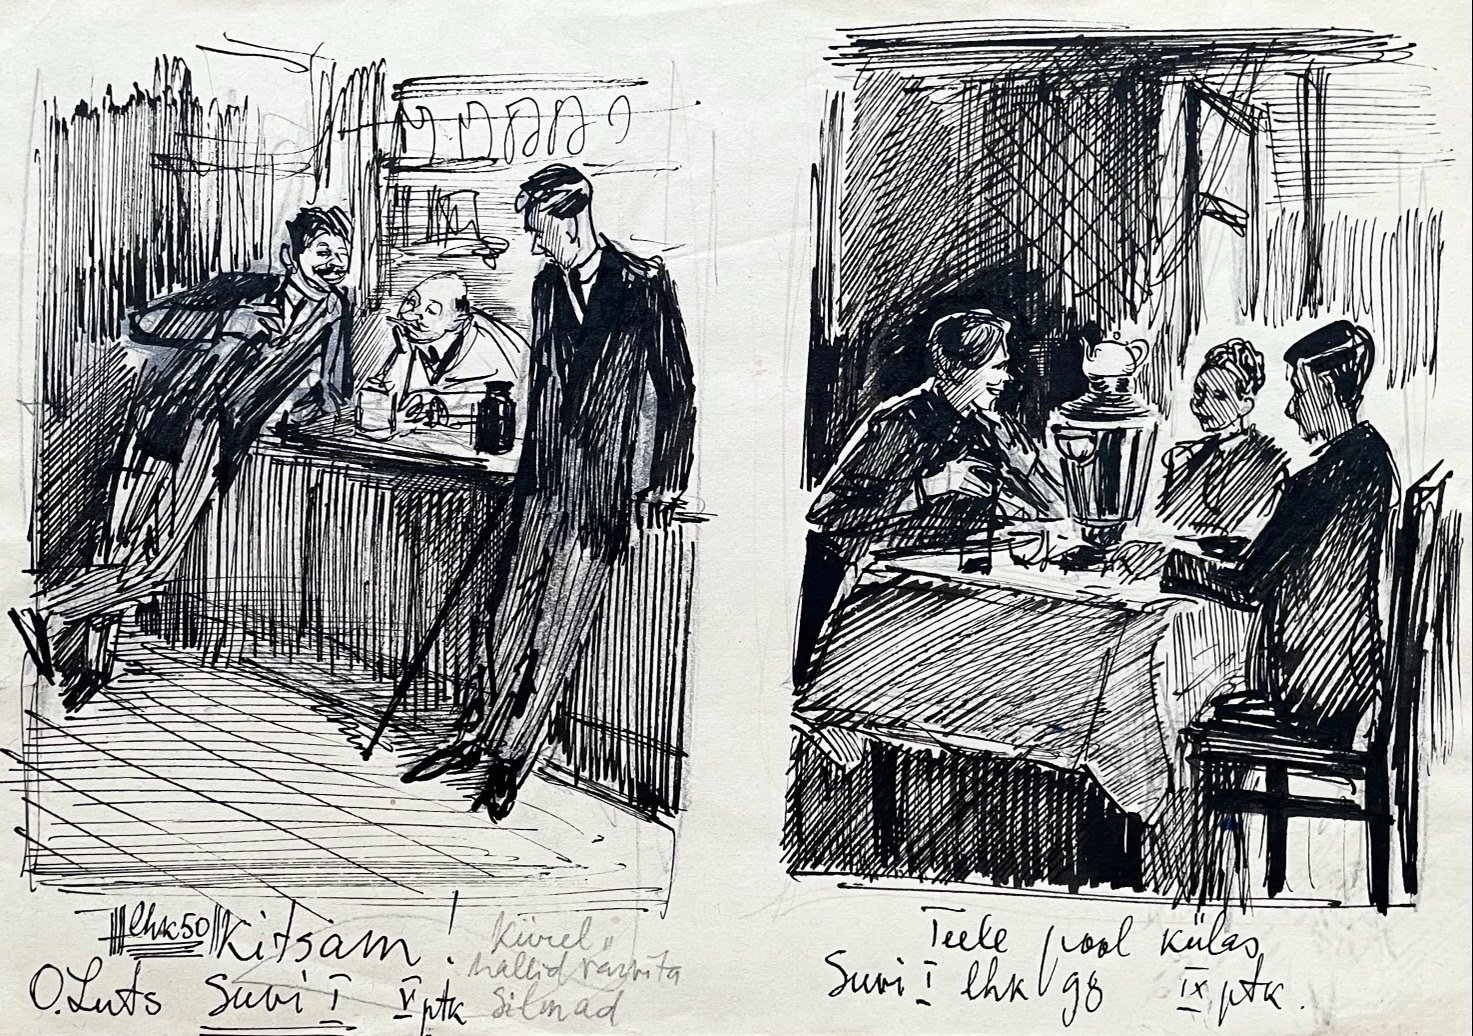 lhk 50 Kitsam!
O. Luts Suvi I V ptk
Kiirel
hallid värvita
silmad
Teele pool külas
Suvi I lhk 98 IX ptk.